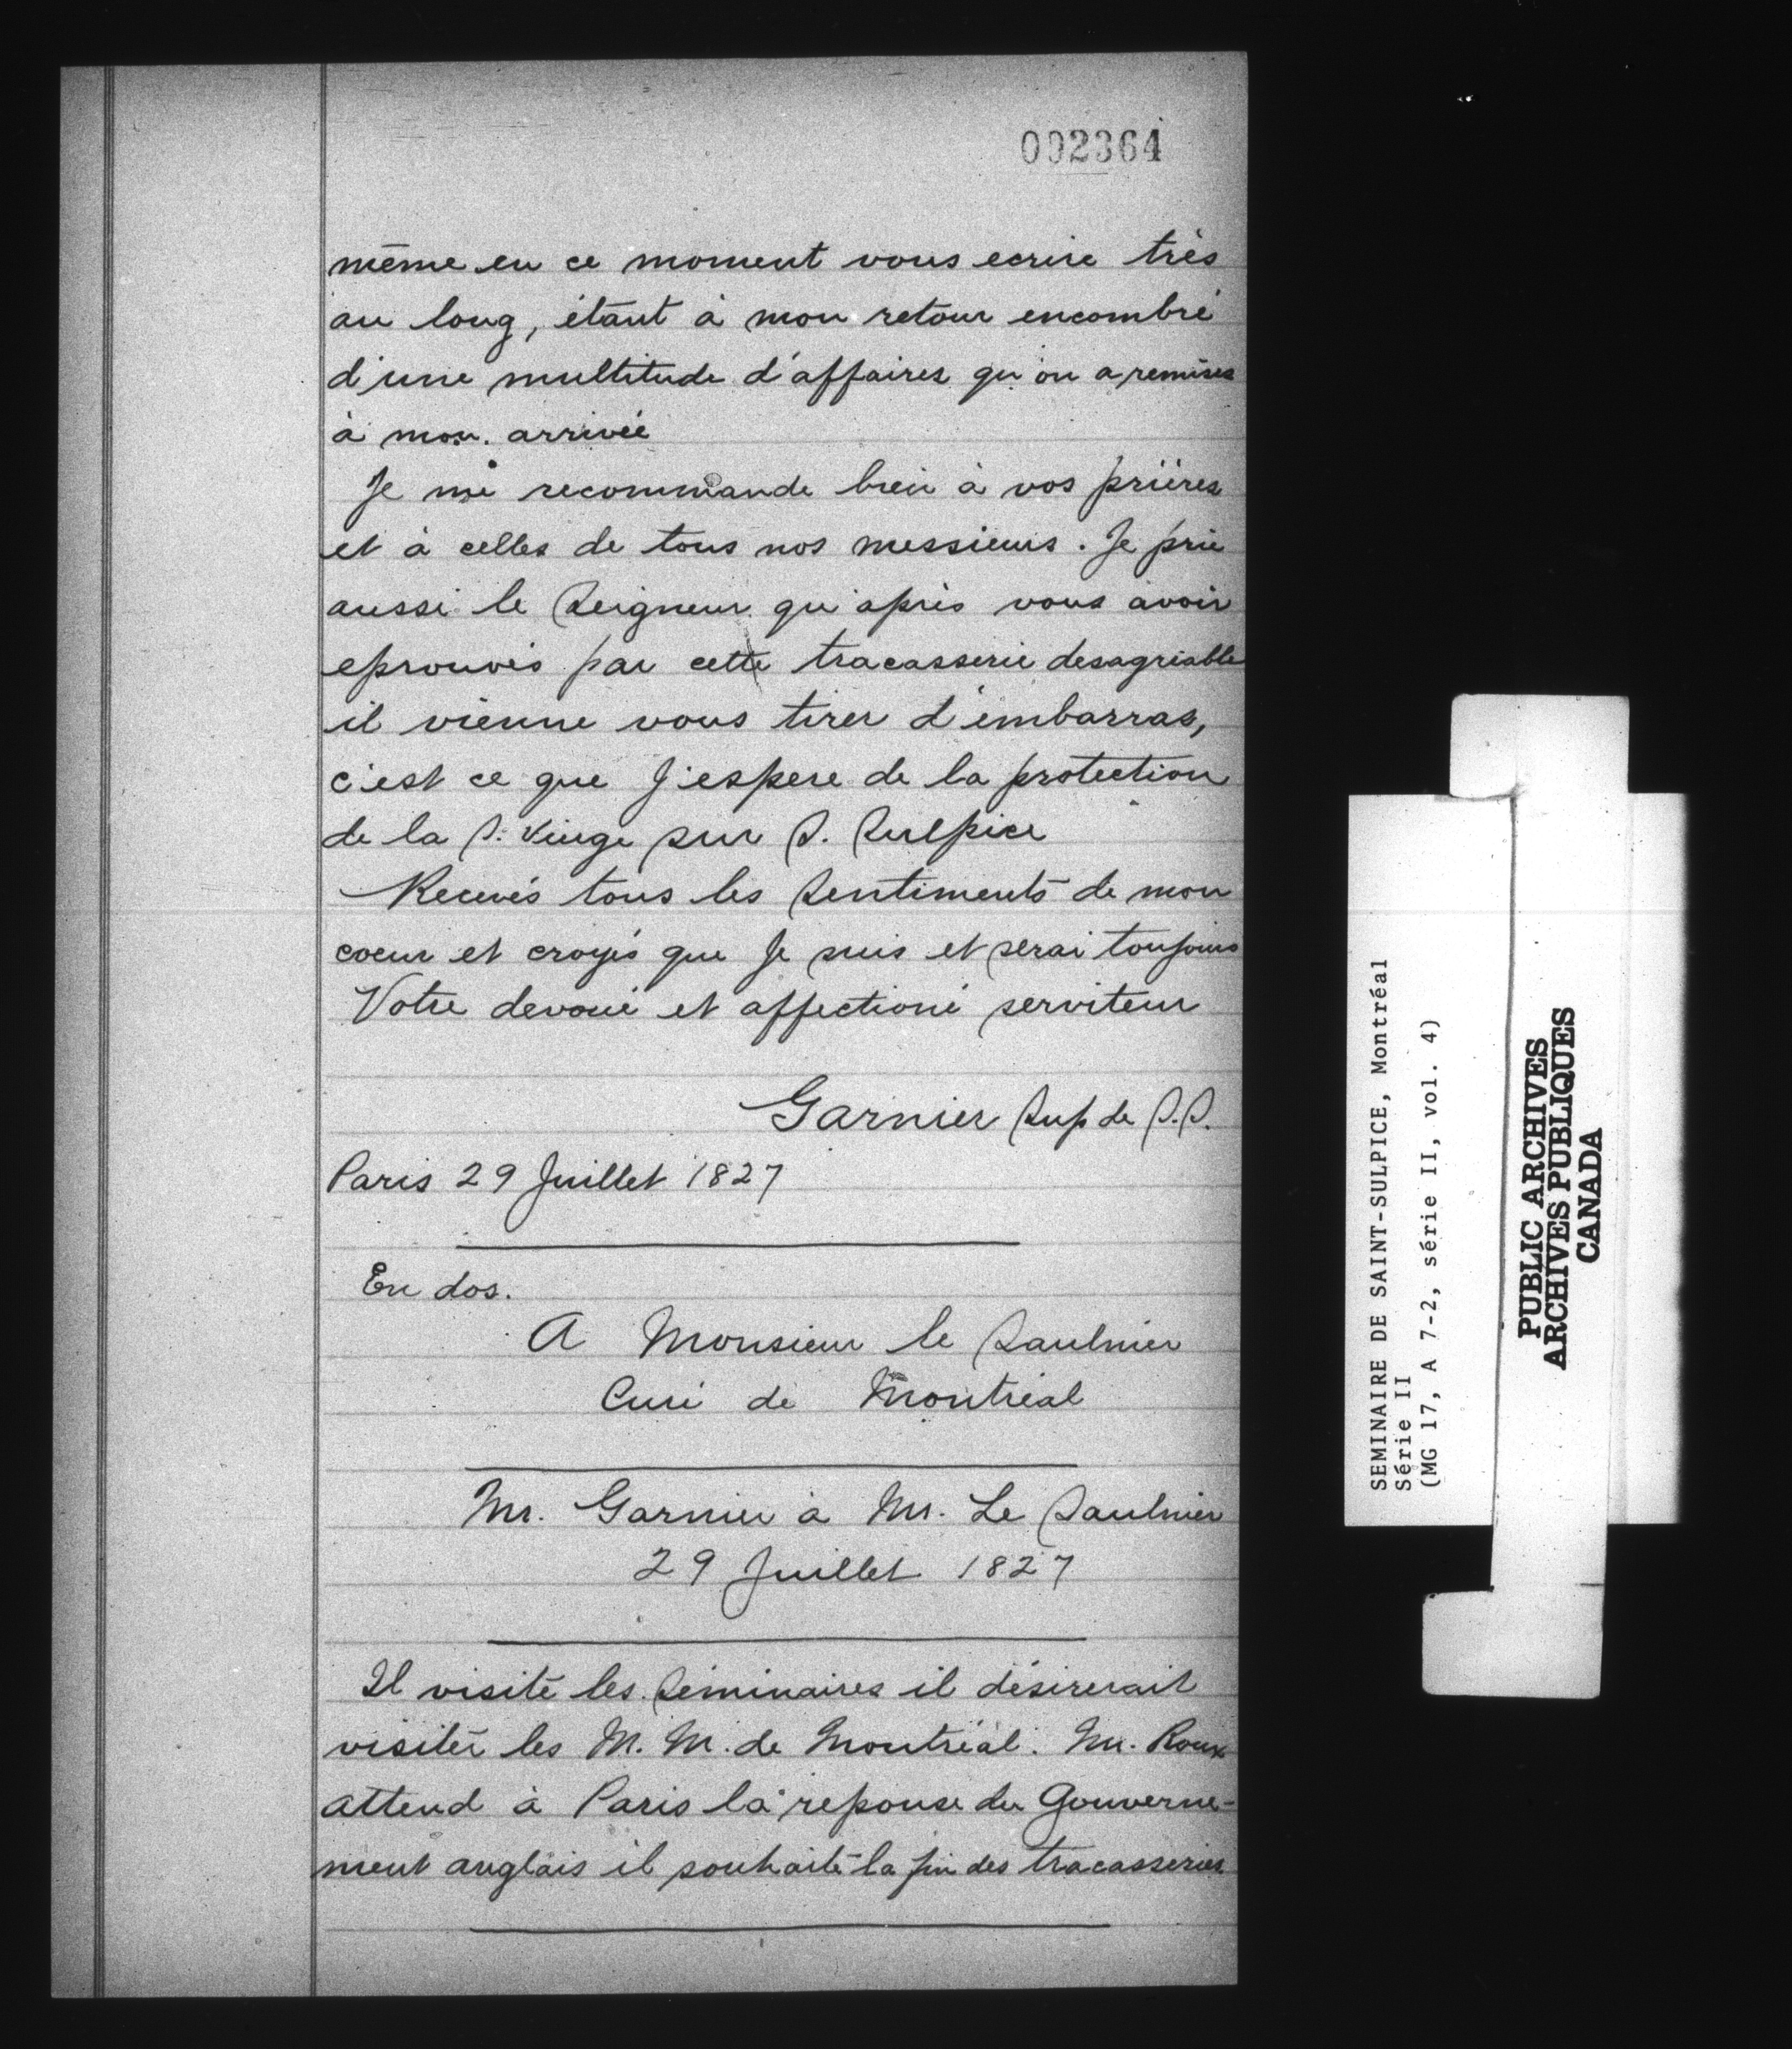 002364
même en ce moment vous ecrire très
au long, étant à mon retour encombré
d'une multitude d'affaires qu'on a remises
à mon arrivée
Je me recommande bien à vos prières
et à celles de tous nos messieurs. Je prie
aussi le Seigneur qu'après vous avoir
eprouvés par cette tracasserie desagréable
il vienne vous tirer d'embarras,
c'est ce que j'espere de la protection
de la S. Vierge sur S. Sulpice
Recevés tous les sentiments de mon
coeur et croyés que je suis et serai toujours
Votre devoué et affectioné serviteur
Garnier Sup de S.S.
Paris 29 Juillet 1827
En dos.
A Monsieur le Saulnier
Curé de Montréal
Mr. Garnier à Mr. Le Saulnier
29 Juillet 1827
Il visite les Séminaires il désirerait
visiter les M. M. de Montréal. Mr. Roux
attend à Paris la reponse du Gouverne-
ment anglais il souhaite la fin des tracasseries.
SEMINAIRE DE SAINT-SULPICE, Montréal
Série II
(MG 17, A 7-2, série II, vol. 4)
PUBLIC ARCHIVES
ARCHIVES PUBLIQUES
CANADA